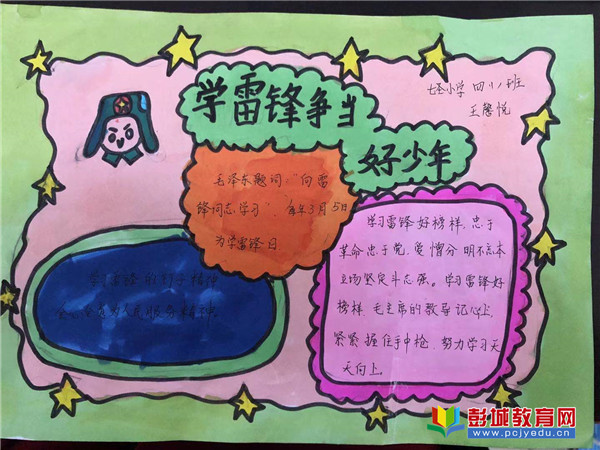 学雷锋争当
好少年
七里小学 四(1)班
王馨悦
毛泽东题词:“向雷
锋同志学习”.每年3月5日
为学雷锋日
学习雷锋好榜样,忠于
革命忠于党.爱憎分明不忘本
立场坚定斗志强。学习雷锋好
榜样.毛主席的教导记心上.
紧紧握住手中枪.努力学习天
天向上.
学习雷锋的钉子精神
全心全意为人民服务精神
彭城教育网
www.pcjyedu.cn